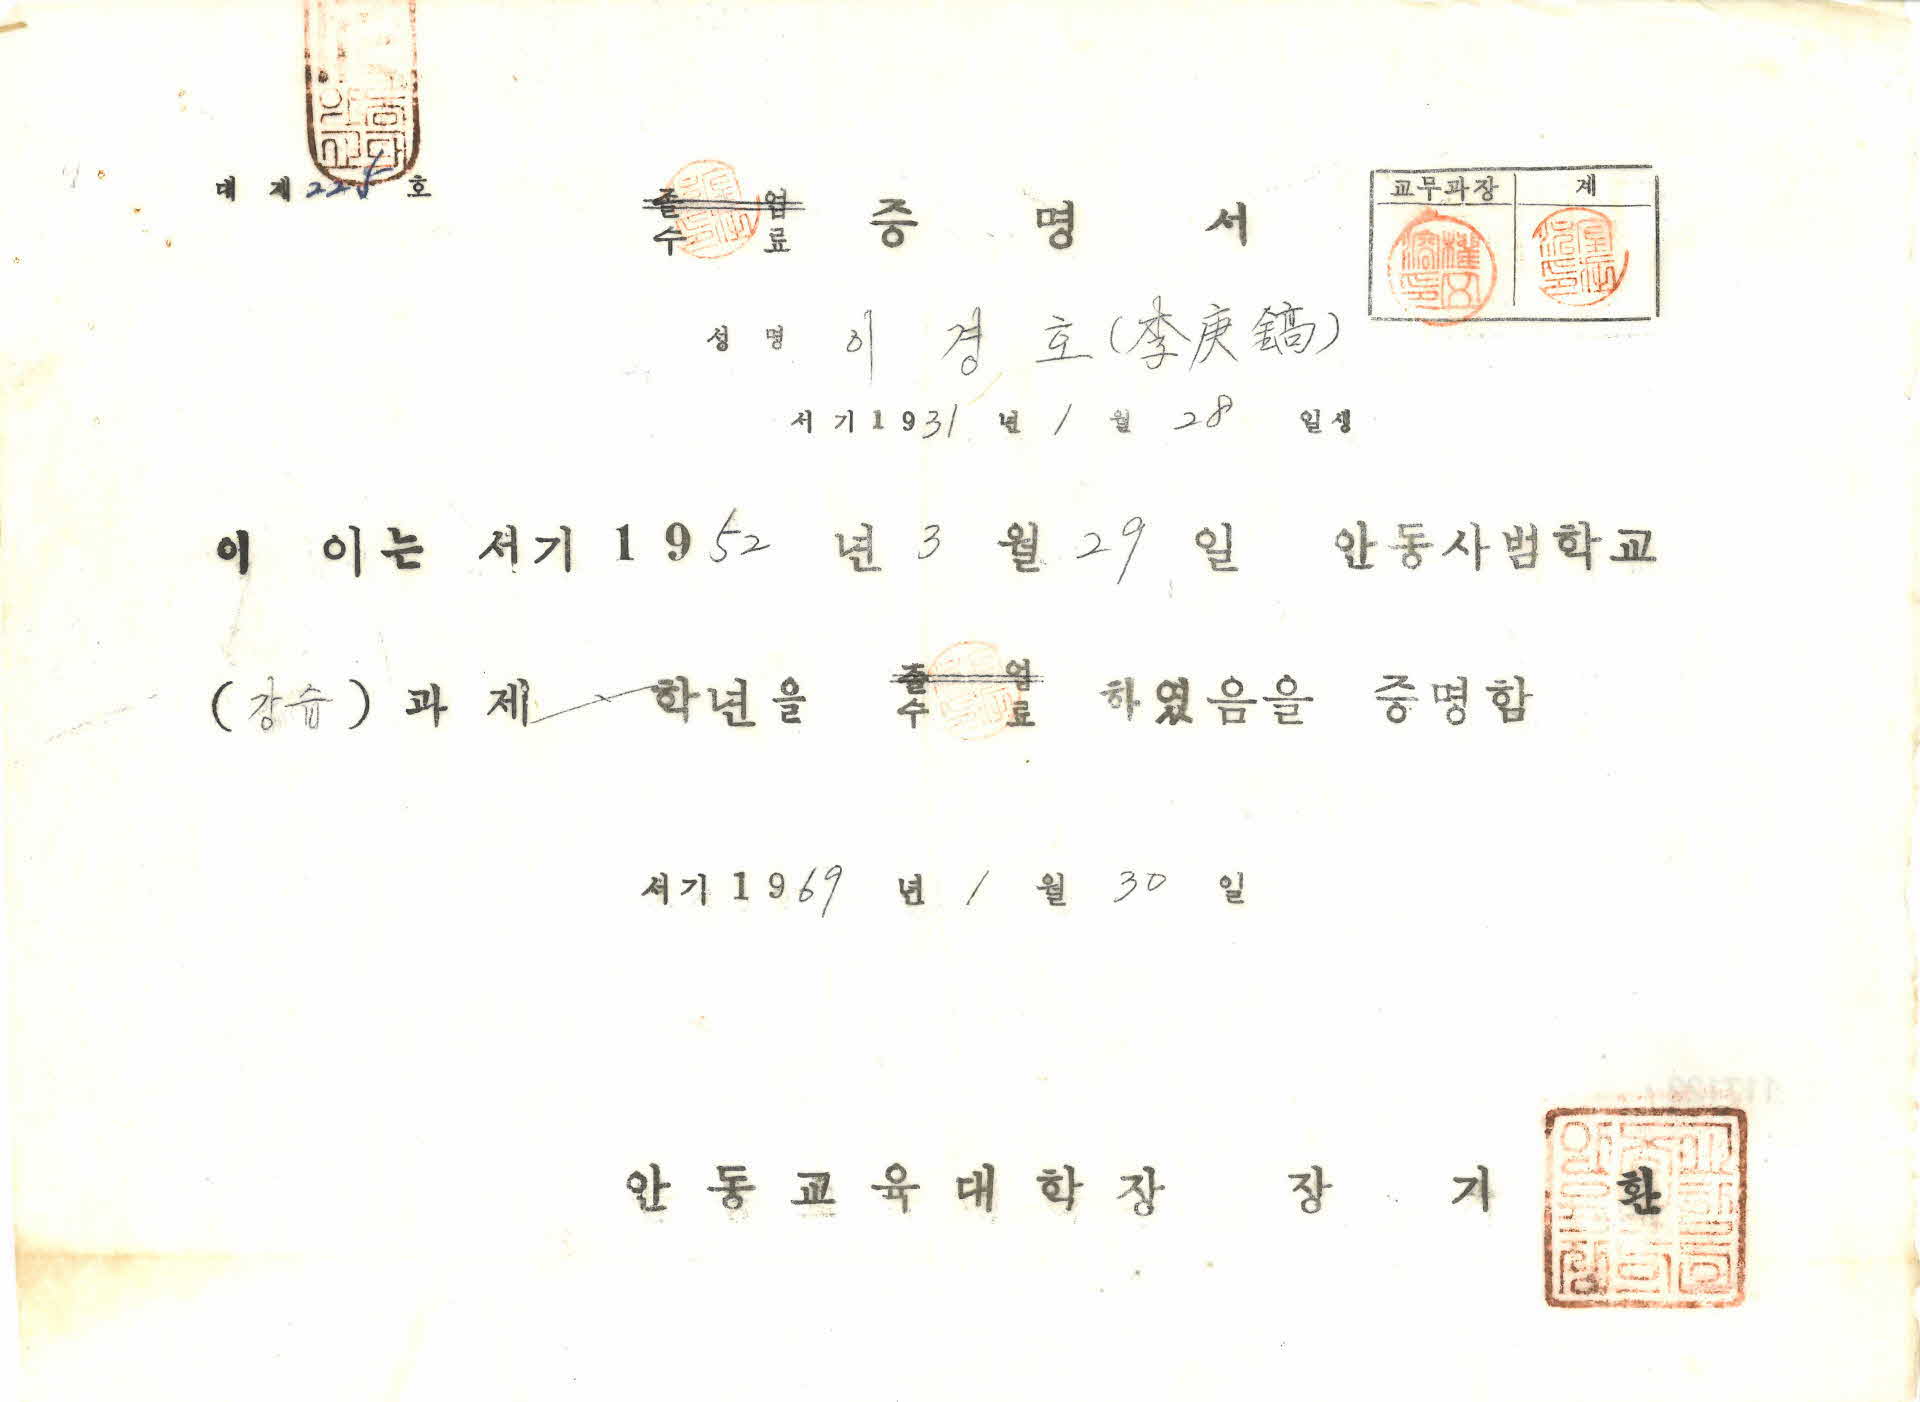 대 제 225 호
졸 업
수 료 증 명 서
교무과장 계
성 명 이 경 호 (李庚鎬)
서기 1931 년 1 월 28 일생
이 이는 서기 1952 년 3 월 29 일 안동사범학교
(강습) 과 제 학년을 졸 업
수 료 하였음을 증명함
서기 1969 년 1 월 30 일
안동교육대학장 장 기 환